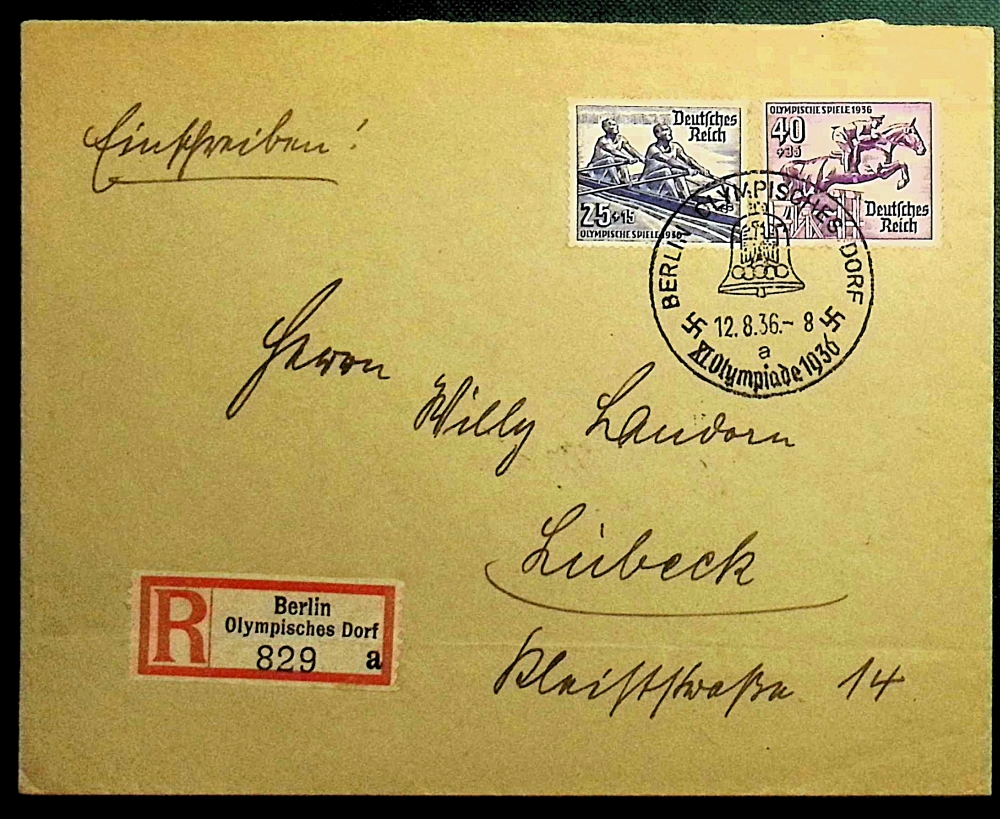 Einschreiben!
Deutsches
Reich
25+15
OLYMPISCHE SPIELE 1936
OLYMPISCHE SPIELE 1936
40
+35
Deutsches
Reich
BERLIN OLYMPISCHES DORF
12.8.36.- 8
a
XI. Olympiade 1936
Herrn
Willy
Lübeck
Kleiststraße 14
R
Berlin
Olympisches Dorf
829 a